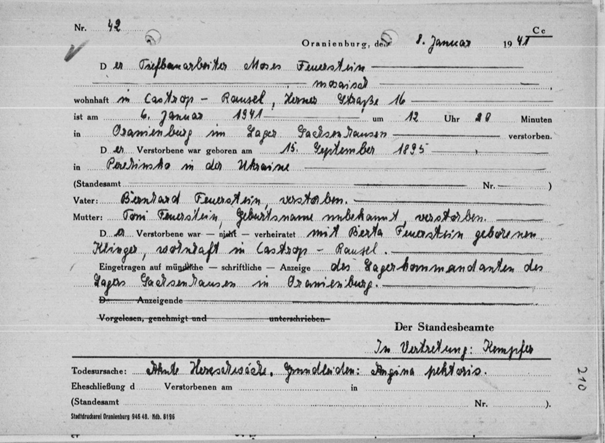 Nr. 42
C c
Oranienburg, den 8. Januar 1941
D er Tiefbauarbeiter Moses Feuerstein
mosaisch
wohnhaft in Castrop - Rauxel, Herner Straße 16
ist am 6. Januar 1941 um 12 Uhr 20 Minuten
in Oranienburg im Lager Sachsenhausen verstorben.
D er Verstorbene war geboren am 15. September 1895
in Perehinsko in der Ukraine
(Standesamt Nr. )
Vater: Bernhard Feuerstein, verstorben.
Mutter: Toni Feuerstein, Geburtsname unbekannt, verstorben.
D er Verstorbene war - nicht - verheiratet mit Berta Feuerstein geborenen
Klinger, wohnhaft in Castrop - Rauxel.
Eingetragen auf mündliche - schriftliche - Anzeige des Lagerkommandanten des
Lagers Sachsenhausen in Oranienburg.
D Anzeigende
Vorgelesen, genehmigt und unterschrieben
Der Standesbeamte
In Vertretung: Kempfer
Todesursache: Akute Herzschwäche, Grundleiden: Angina pektoris.
Eheschließung d Verstorbenen am in
(Standesamt Nr. )
Stadtdruckerei Oranienburg 946 40. Rdb. 6196
210